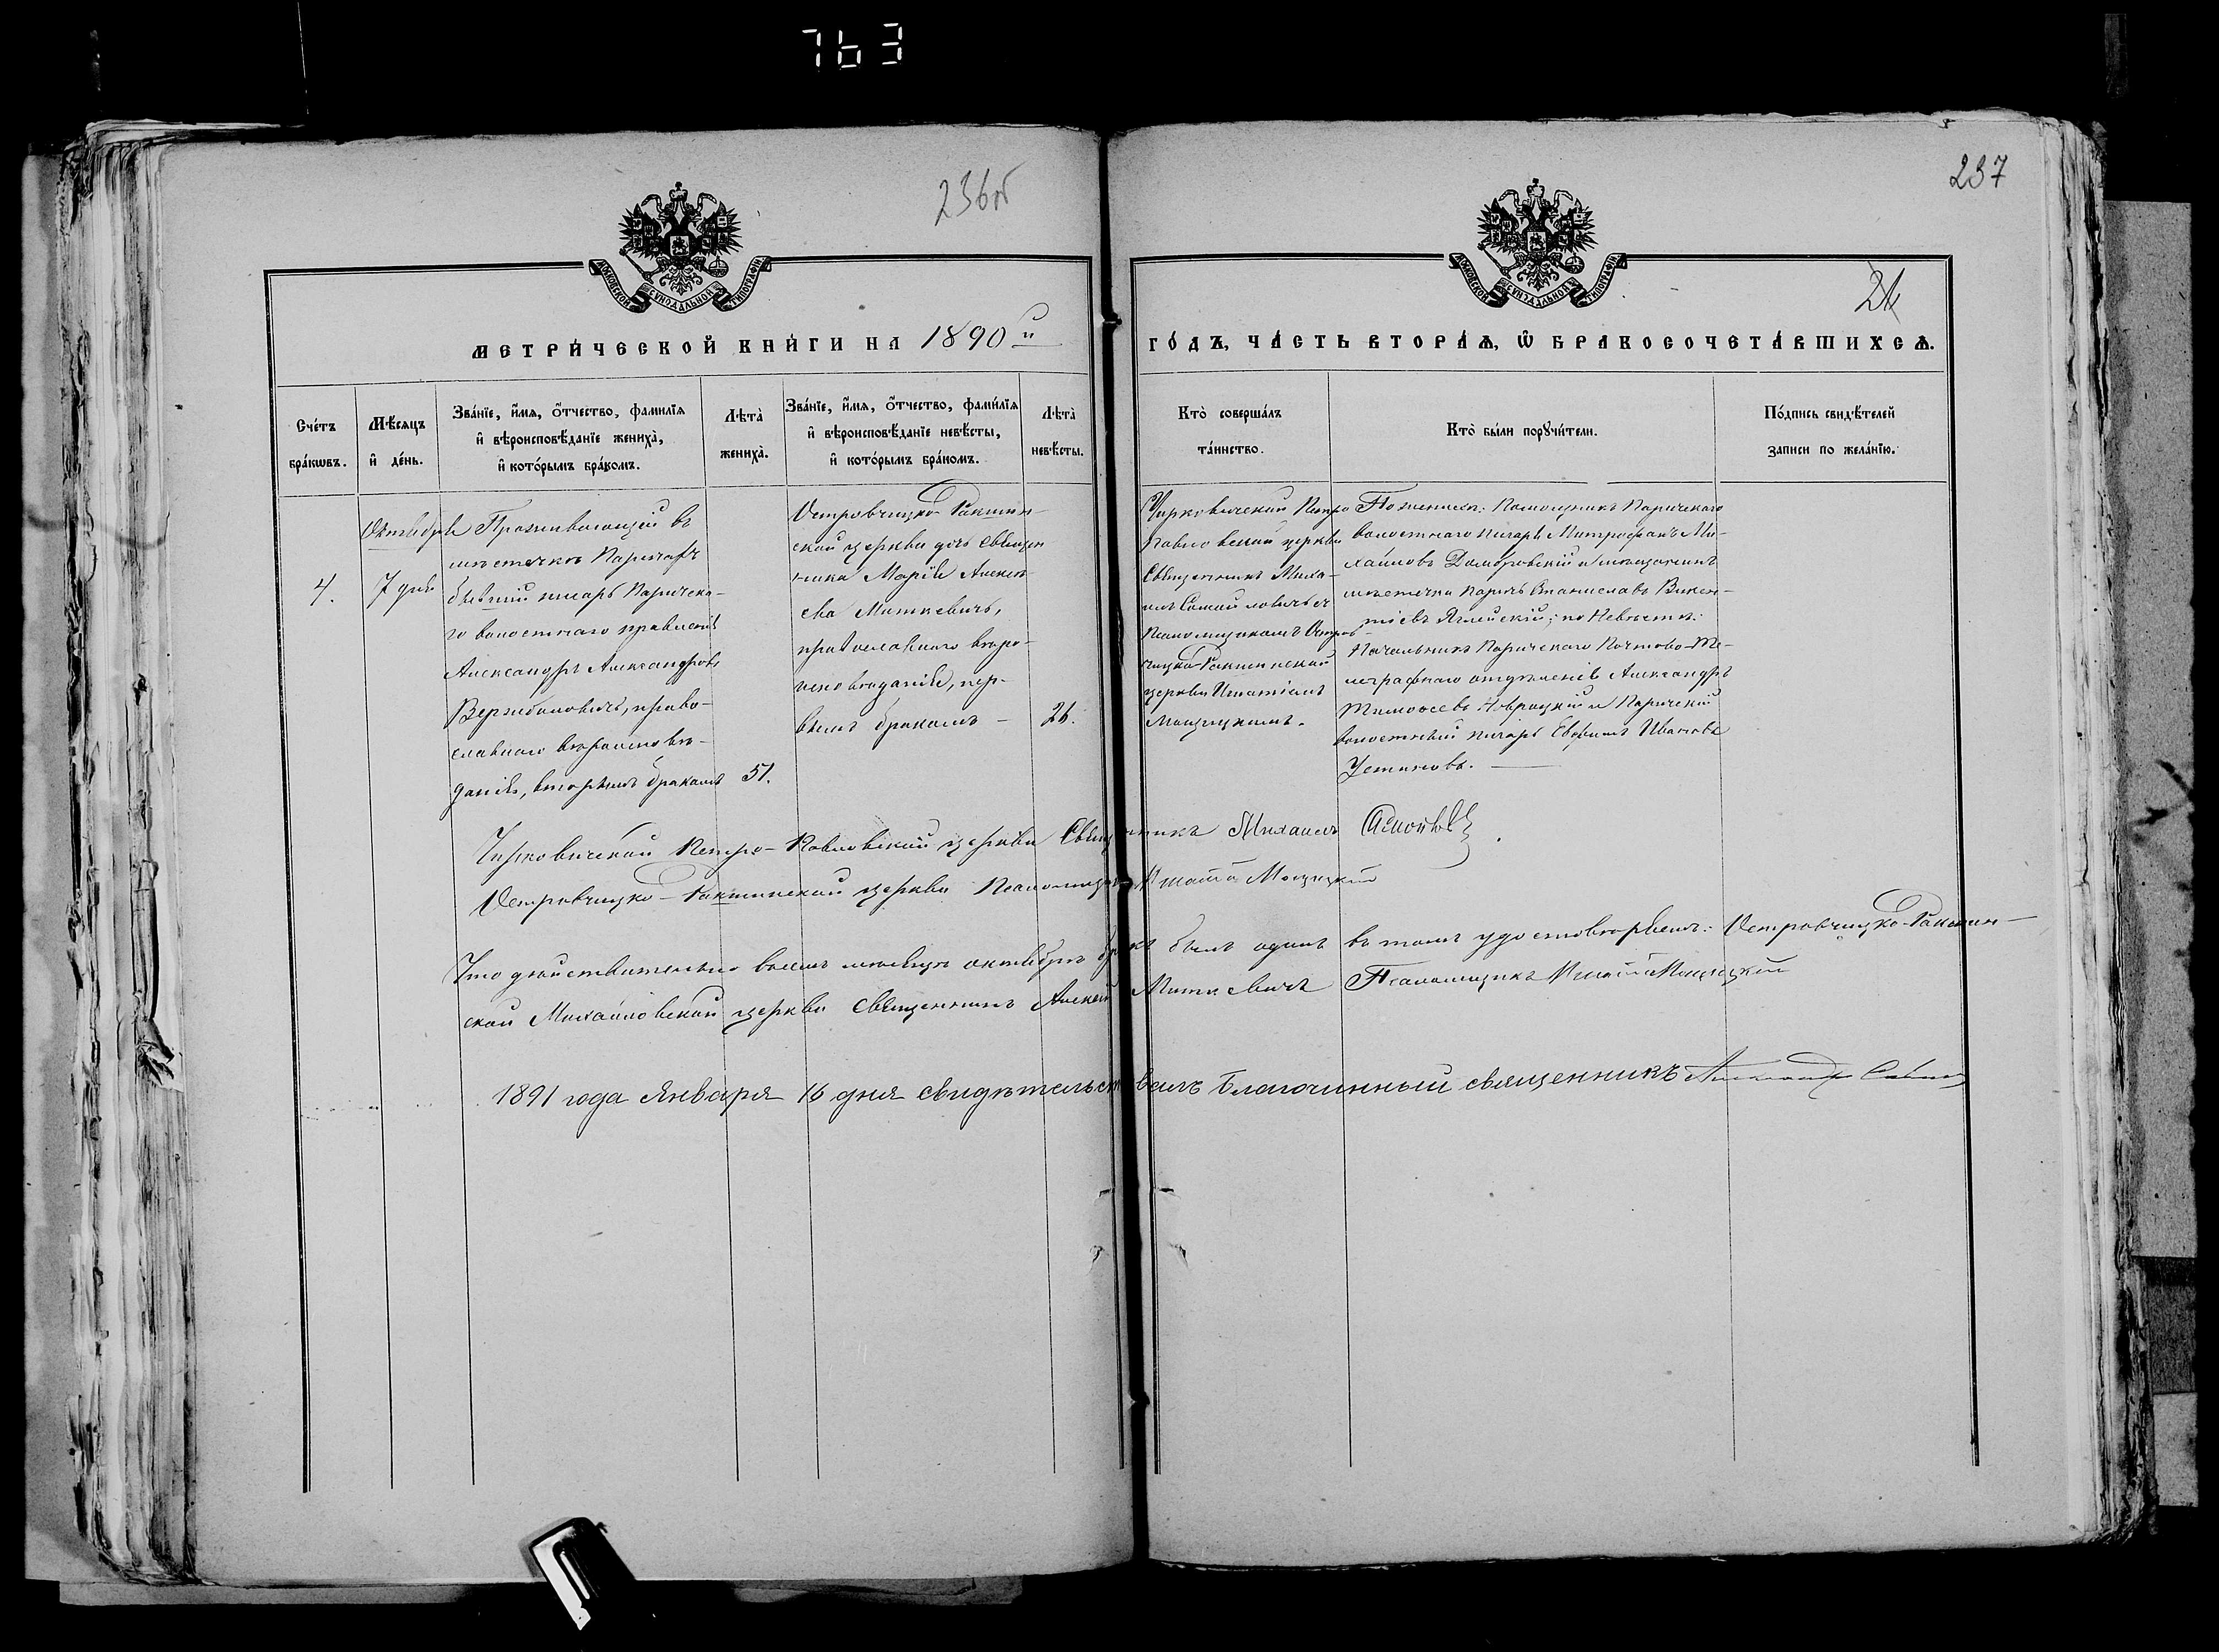 763
236об
237
МОСКОВСКОЙ СѴНОДАЛЬНОЙ ТИПОГРАФІИ
МОСКОВСКОЙ СѴНОДАЛЬНОЙ ТИПОГРАФІИ
24
МЕТРИ́ЧЕСКОЙ КНИ́ГИ НА 1890й
ГО́ДЪ, ЧА́СТЬ ВТОРА́Ѧ, Ѿ БРАКОСОЧЕТА́ВШИХСѦ.
Сче́тъ
бра́кѡвъ.
Мѣ́сяцъ
и҆ де́нь.
Зва́нїе, и҆́мѧ, ѻ҆́тчество, фамилїѧ
и҆ вѣроисповѣ́данїе жениха̀,
и҆ кото́рымъ бра́комъ.
Лѣта̀
жениха̀.
Зва́нїе, и҆́мѧ, ѻ҆́тчество, фами́лїѧ
и҆ вѣроисповѣ́данїе невѣ́сты,
и҆ кото́рымъ бра́комъ.
Лѣта̀
невѣ́сты.
Кто̀ соверша́лъ
та́инство.
Кто̀ бы́ли порꙋчи́тели.
По́дпись свидѣ́телей
записи по жела́нїю.
4.
Октября
7 дня
Проживающій въ
мѣстечкѣ Паричахъ
бывшій писарь Паричска-
го волостнаго правленія
Александръ Александровъ
Вержбиловичъ, право-
славнаго вѣроисповѣ-
данія, вторымъ бракомъ
51.
Островчицко-Ракшин-
ской церкви дочь Священ
ника Марія Алексѣ
ева Миткевичъ,
православнаго вѣро-
исповѣданія, пер-
вымъ бракомъ —
21.
Чирковичской Петро
Павловской церкви
Священникъ Миха-
илъ Самойловичъ съ
Псаломщикомъ Остров-
чицко-Ракшинской
церкви Игнатіемъ
Мощицкимъ.
По женихѣ: Помощникъ Паричскаго
волостнаго писаря Митрофанъ Ми-
хайловъ Домбровскій и мѣщанинъ
мѣстечка Паричъ Станиславъ Викен-
тіевъ; по Невѣстѣ:
Начальникъ Паричскаго Почтово-Те-
леграфнаго отдѣленія Александръ
Тимоѳеевъ Навроцкій и Паричскій
волостный писарь Евфимъ Ивановъ
Устиновъ. —
Чирковичской Петро-Павловской церкви Священникъ Михаилъ
Островчицко-Ракшинской церкви Псаломщикъ Игнатій Мощицкій
Что дѣйствительно въ семъ мѣсяцѣ октябрѣ бракъ былъ одинъ въ томъ удостовѣряемъ: Островчицко-Ракшин-
ской Михайловской церкви Священникъ Алексѣй Миткевичъ Псаломщикъ Игнатій Мощицкій
1891 года Января 16 дня свидѣтельствовалъ Благочинный священникъ Александръ